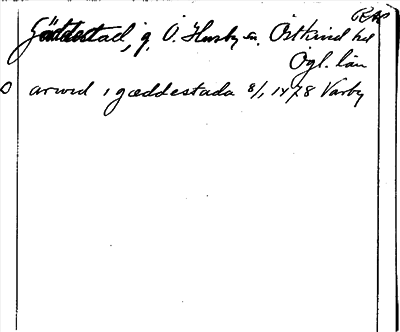 Gäddestad, g, Ö. Husby sn. Östkind hd
Ögl. län
arwid i gæddestada 8/1 1478 Vårby